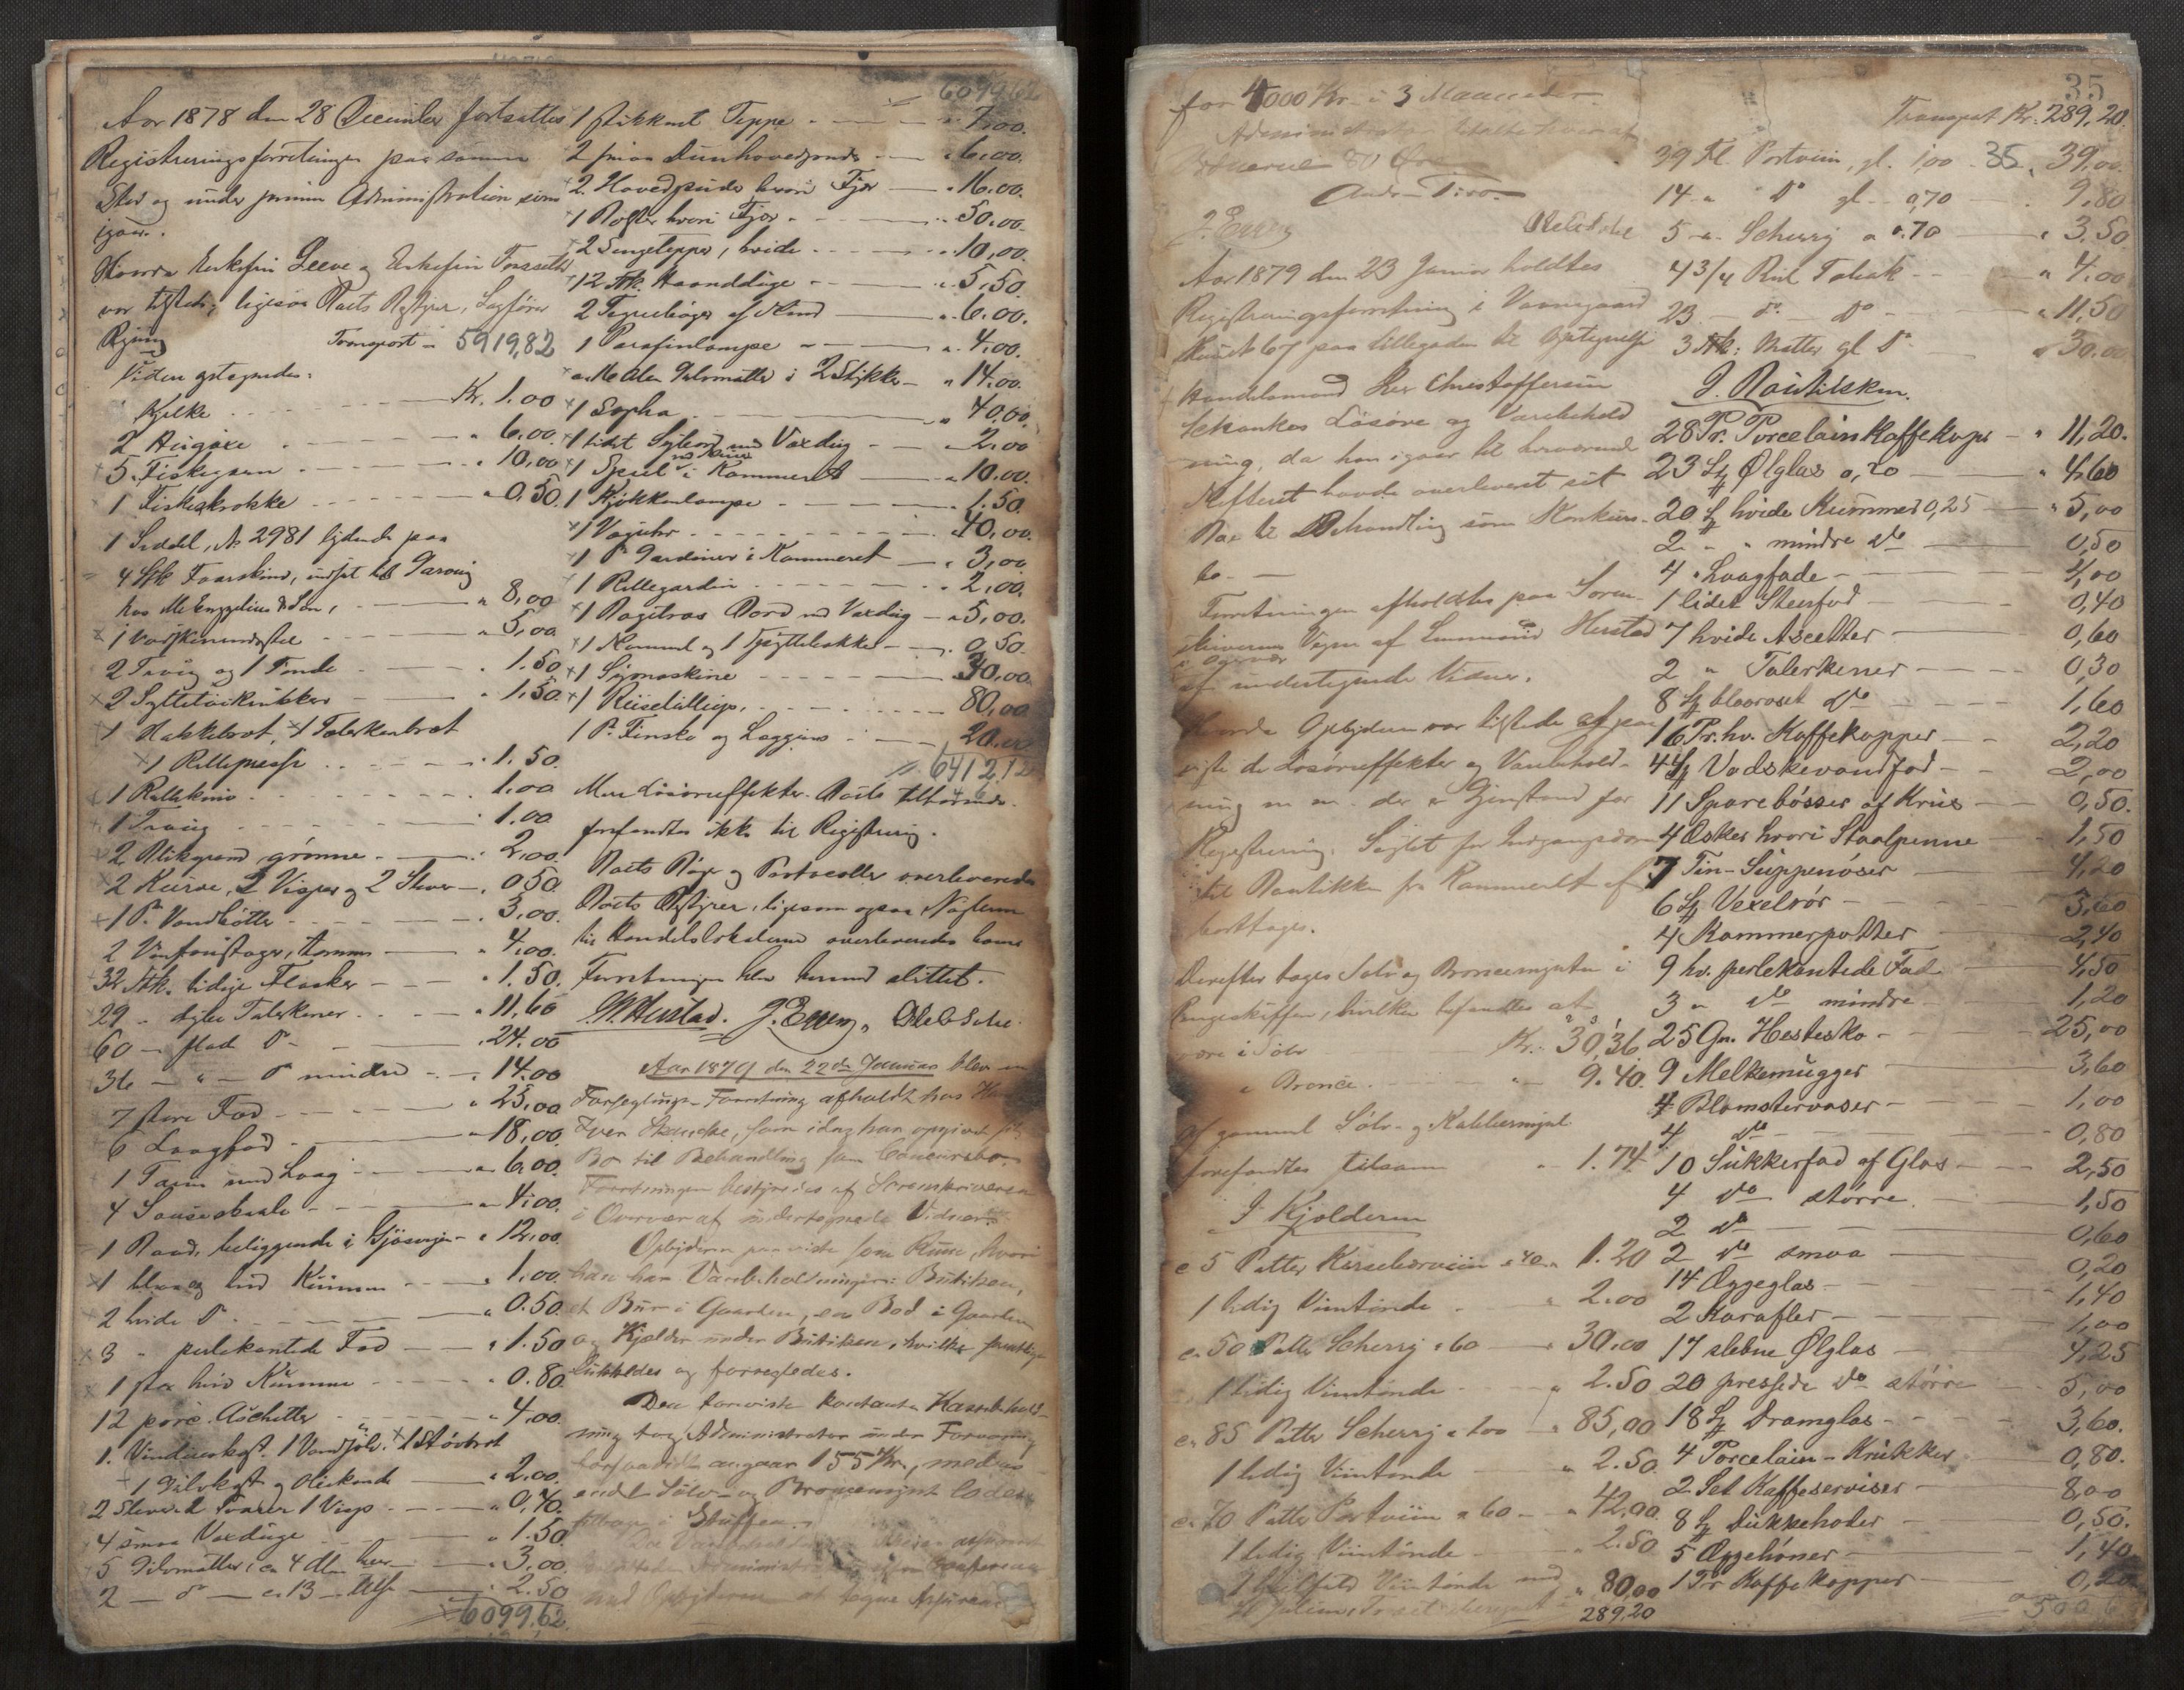 Aar 1878 den 28 December fortsattes
Registreringsforretningen paa samme
Sted og under samme Administration som
igaar.
Enkefru Leeve og Enkefru
var tilstede, ligesaa Boets Bestyrer, Sagfører
Transport 5919,82
Viden optegnedes:
Kjelke Kr. 1.00
2 6.00
5 Fiskegarn 10,00
1 Fiskekrokke 0,50
1 Seddel, No 2981 lydende paa
4 Stk Faarskind, indsat til Garving
hos & Søn, 8,00
1 5,00
2 Traug og 1 1.50
2 Syltetøikrukker 1,50
1 Hakkebret, 1 Tallerkenbret
1 Rullepresse 1,50
1 1,00
1 Traug 1.00
2 Blikspand grønne 2,00
2 Kurve, 2 Visper og 2 Slever 0,50
1 Pr. Vandbøtter 3,00
2 4,00
32 Stk. ledige Flasker 1.50
29 - dybe Talerkener 11,60
60 - flade Do 24.00
36 - " - Do mindre 14.00
7 store Fad 25,00
6 Laagfad 18,00
1 Terin med Laag 6,00
4 Sauseskaale 4,00
1 Baad, beliggende i 12,00
1 blaa og hvid Kumme 1,00
2 hvide Do 0.50
3 - perlekantede Fad 1.50
1 stor hvid Kumme 0.80
12 porc. Aschetter 4,00
1. 1 1 Støvbret
1 og 2.00
2 Slever 1 Visp 0,70
4 smaa Voxduge 1.50
5 Gulvmatter 3,00
2 - Do - ca 13 - 2.50
6099,62
6099,62
1 stikket Teppe 7,00
2 smaa Dunhovedpuder 6,00
2 Hovedpuder hvori Fjær 16.00
1 Bolster hvori Fjær 50.00
2 Sengetepper, hvide 10,00
12 Stk. Haandduge 5,50
2 6,00
1 Parafinlampe 4,00
Alen Gulvmatter i 2 Stykker 14.00
1 Sopha 40,00
1 lidet Sybord med Voxdug 2.00
1 Speil i Kammeret 10.00
1 Kjøkkenlampe 1.50
1 Væguhr 40,00
1 Pr Gardiner i Kammeret 3,00
1 Rullegardin 2,00
1 Bord med Voxdug 5,00
1 Kommod og 1 Spyttebakke 0,50
1 Symaskine 30,00
1 80,00
1 Pr. Finsko og Laggins 20.00
6412,12
Mere Løsøreeffekter Boets tilhørende
forefandtes ikke til Registrering.
Boets Bøger og Protocoller overleveredes
Boets Bestyrer, ligesom ogsaa Nøglerne
til Handelslokalerne overleveredes ham
Forretningen blev hermed sluttet.
Hustad. J. Eggen,
Aar 1879 den 22de Januar blev en
Forseglings-Forretning afholdt hos
Iver Skancke, som idag har opgivet sit
Bo til Behandling som Concursbo.
Forretningen bestyredes af Sorenskriveren
i Overvær af undertegnede Vidner.
Opbyderen paaviste som Rum, hvori
han har Vareheholdninger: Butiken,
et Bur i Gaarden, en Bod i Gaarden
og Kjelder under Butiken, hvilke samtlige
lukkedes og forsegledes.
Den foreviste kontante Kassebehold-
ning tog Administrator under Forvaring
angaar 155 Kr., medens
endel Sølv- og Broncemynt lades
tilbage i Skuffen.
35
for 4000 Kr i 3 Maaneder.
Administrator
80 Øre
J. Eggen
Aar 1879 den 23 Januar holdtes
Registreringsforretning i Vaaningsgaard
paa til Optegnelse
Handelsmand Iver Christoffersen
Schankes Løsøre og Varebehold-
ning, da han igaar til herværende
Skifteret havde overleveret sit
Bo til Behandling som Konkurs-
bo.
Forretningen afholdtes paa Soren-
skriverens Vegne af Hustad
i Overvær
af undertegnede Vidner.
Opbyderen var tilstede og paa-
viste de Løsøreeffekter og Varebehold-
ning m. m. der er Gjenstand for
Registrering. Seglet for Indgangsdøren
til Boutikken fra Kammeret af
borttages.
Derefter toges Sølv og Broncemynten i
Pengeskuffen, hvilken befandtes at
være i Sølv Kr. 30,36
" Bronce 9.40
Af gammel Sølv- og Kobbermynt
forefandtes tilsamm. 1.74
I Kjelderen
c 5 Potter Kirsebærviin a 40 1.20
1 ledig Viintønde 2.00
c. 50 Potter Scherry a 60 30.00
1 ledig Viintønde 2.50
c. 85 Potter Scherry a 100 85,00
1 ledig Viintønde 2.50
c. 70 Potter Portviin a 60 42,00
1 ledig Viintønde 2.50
1 Viintønde med 80,00
289,20
Transport Kr. 289,20
39 Fl. Portviin, gl. 1,00 39,00
14 " Do gl. 0,70 9,80
5 " Scherry a 0.70 3.50
4 3/4 Rul Tobak 4.00
23 Do Do 11,50
3 Stk: Matter gl. Do 30,00
I Boutikken.
28 Pr. Porcelain Kaffekopper 11,20
23 St Ølglas 0,20 4,60
20 St hvide Kummer 0,25 5,00
2 " " mindre Do 0,50
4 Laagfade 4,00
1 lidet Steenfad 0,40
7 hvide Ascetter 0,60
2 " Talerkener 0,30
8 St blaaroset Do 1,60
16 Pr. hv. Kaffekopper 2,20
4 St Vadskevandfad 2,00
11 Sparebøsser af Kruus 0,50
4 Æsker hvori Staalpenne 1,50
7 Tin-Suppenøser 4,20
6 St Vexelrør 3,60
4 Kammerpotter 2,40
9 hv. perlekantede Fad 4,50
3 " Do mindre 1,20
25 Gr. Hestesko 25,00
9 Melkemugger 3,60
4 Blomstervaser 1,00
4 Do 0,80
10 Sukkerfad af Glas 2,50
4 Do større 1,50
2 Do 0,60
2 Do smaa 0,20
14 Æggeglas 1,40
2 Karafler 1,00
17 slebne Ølglas 4,25
20 pressede Do større 5,00
18 St Dramglas 3,60
4 Porcelain-Krukker 0,80
2 Set Kaffeserviser 8,00
8 St Dukkehoder 0,50
5 Æggehøner 1,40
1 Pr Kaffekopper 0,20